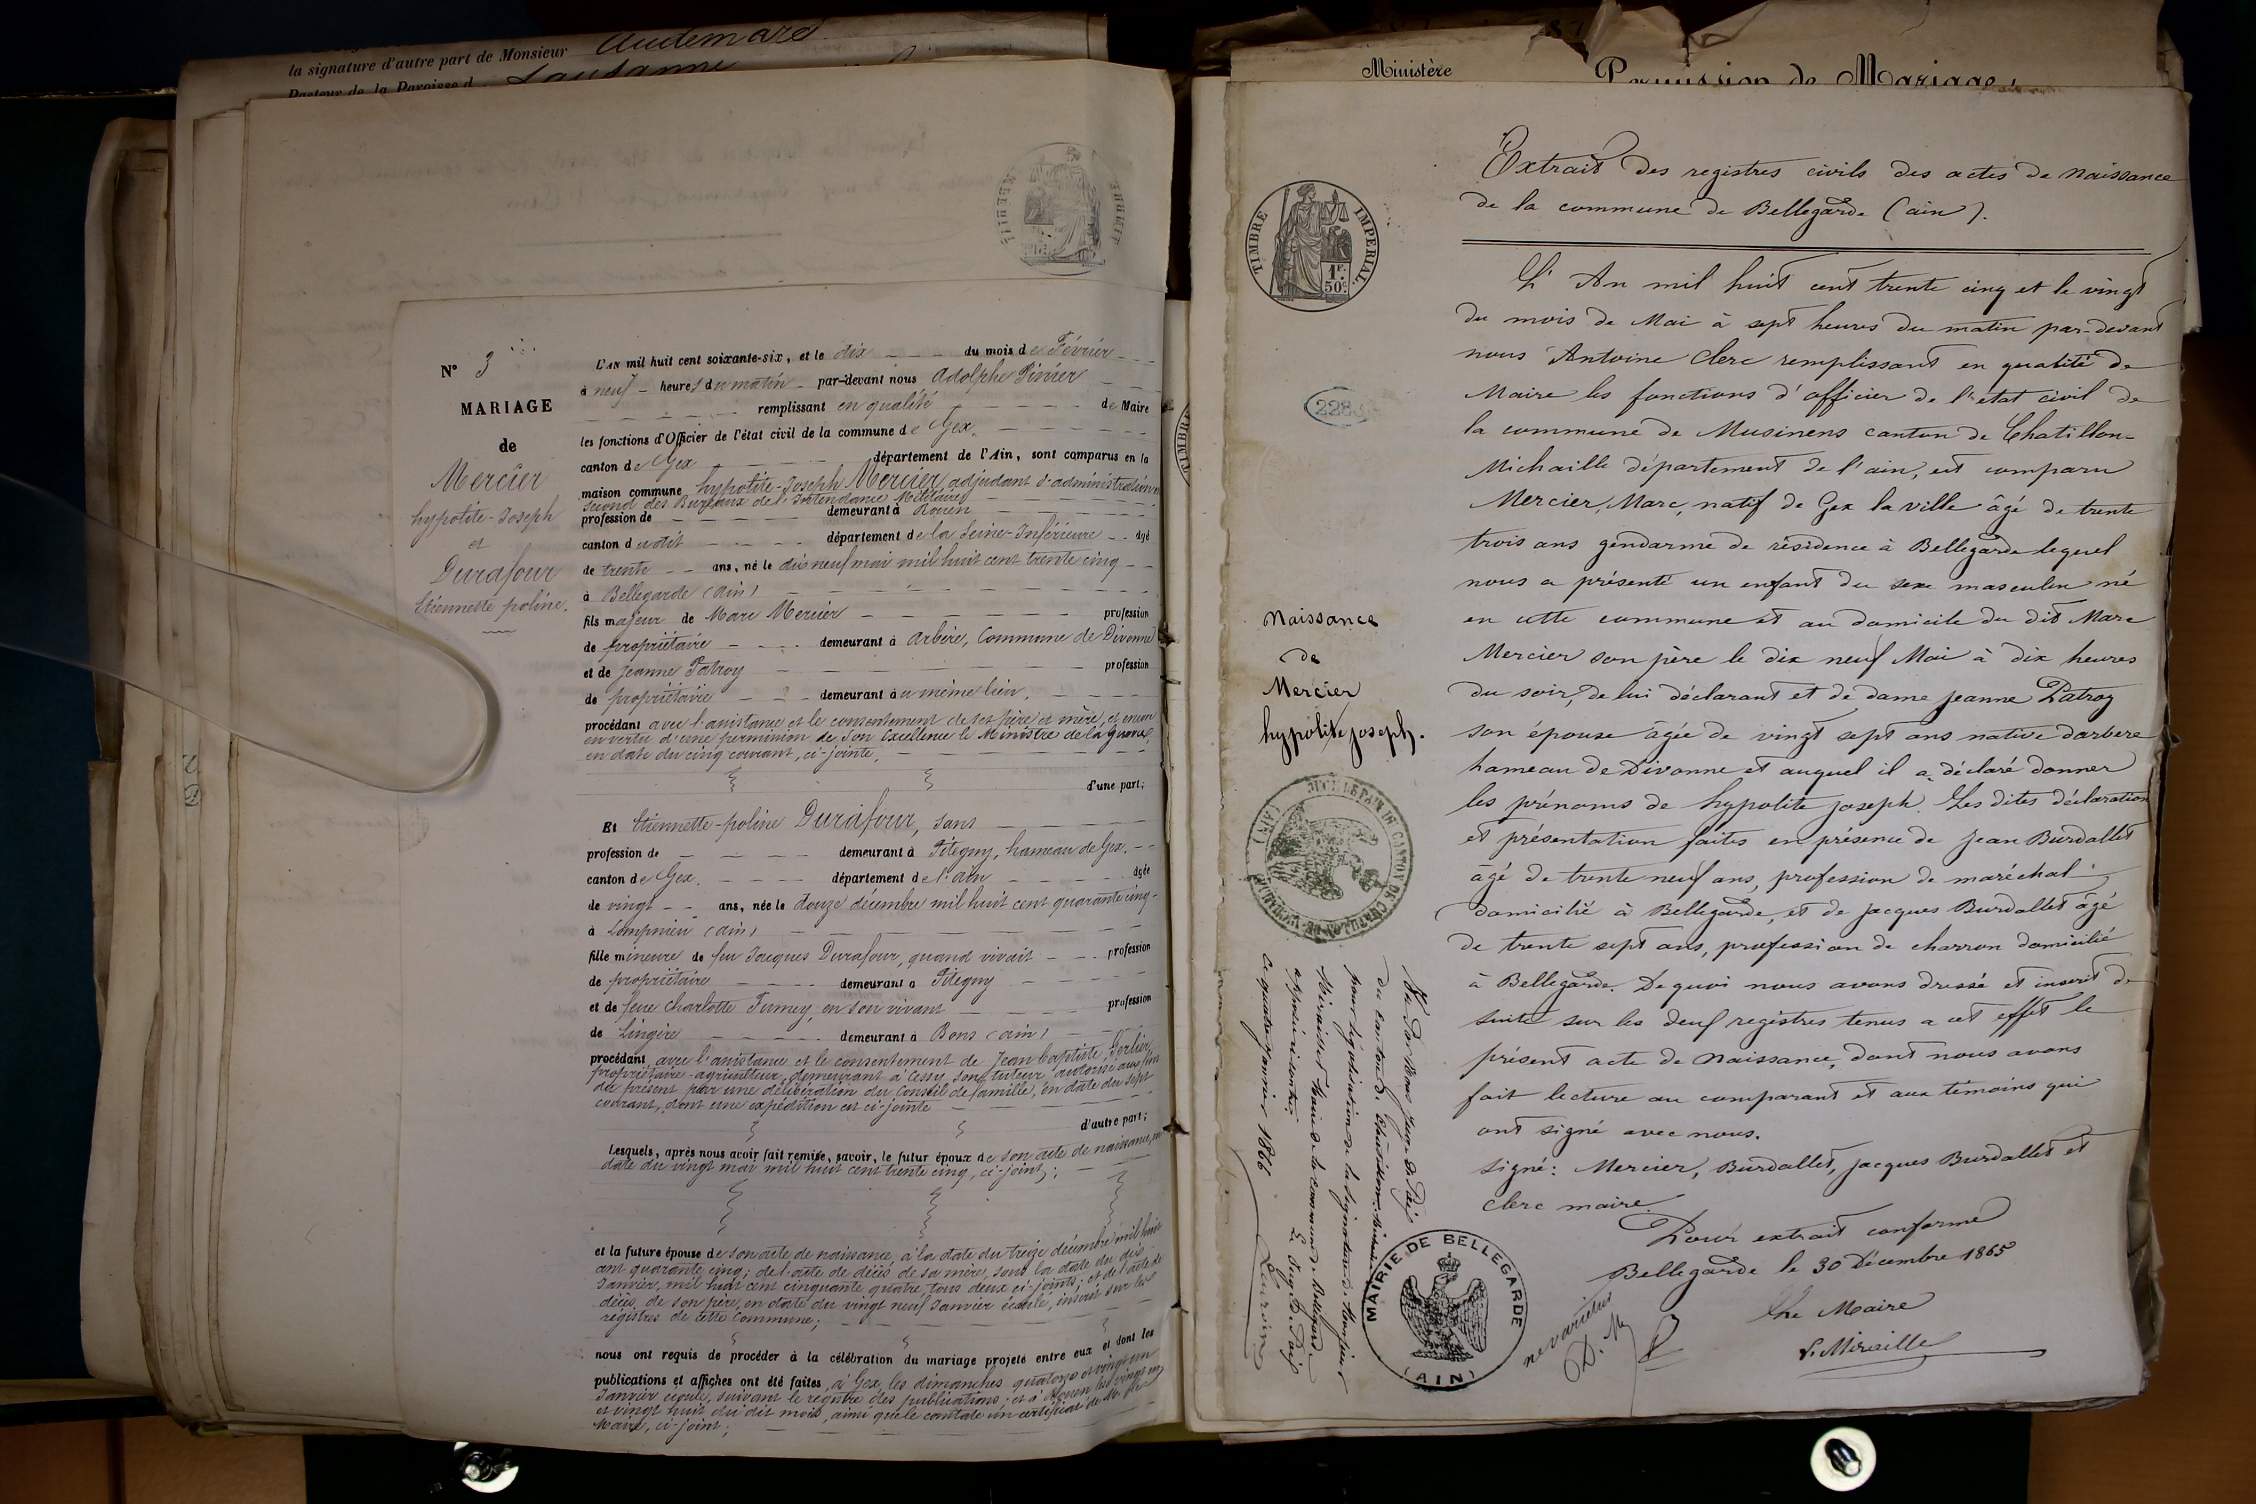 la signature d'autre part de Monsieur Audemard
Pasteur de la Paroisse d Lausanne
N° 3
MARIAGE
de
Mercier
hypolite-Joseph
et
Durafour
Etiennette poline.
L'AN mil huit cent soixante-six, et le dix du mois de Février
à neuf heures du matin par-devant nous Adolphe Pinier
remplissant en qualité de Maire
les fonctions d'Officier de l'état civil de la commune de Gex,
canton de Gex département de l'Ain, sont comparus en la
maison commune hypolite-Joseph Mercier, adjudant d'administration
second des Bureaux de l'Intendance Militaire,
profession de demeurant à Rouen
canton dudit département de la Seine-Inférieure âgé
de trente ans, né le dix neuf mai mil huit cent trente cinq
à Bellegarde (ain)
fils majeur de Marc Mercier profession
de propriétaire demeurant à Arbère, Commune de Divonne
et de Jeanne Patroy profession
de propriétaire demeurant au même lieu,
procédant avec l'assistance et le consentement de ses père et mère, et encore
en vertu d'une permission de Son Excellence le Ministre de la Guerre,
en date du cinq courant, ci-jointe,
d'une part;
Et Etiennette-poline Durafour, sans
profession de demeurant à Pitegny, hameau de Gex.
canton de Gex. département de l'ain âgée
de vingt ans, née le douze décembre mil huit cent quarante cinq
à Lompnieu (ain)
fille mineure de feu Jacques Durafour, quand vivait profession
de propriétaire demeurant à Pitegny
et de feue Charlotte Fumey, en son vivant profession
de Lingère demeurant à Bons (ain)
procédant avec l'assistance et le consentement de Jean baptiste Gerlier,
propriétaire-agriculteur, demeurant à Cessy, son tuteur autorisé aux fins
du présent par une délibération du Conseil de famille, en date du sept
courant, dont une expédition est ci-jointe
d'autre part;
Lesquels, après nous avoir fait remise, savoir, le futur époux de son acte de naissance, en
date du vingt mai mil huit cent trente cinq, ci-joint;
et la future épouse de son acte de naissance, à la date du treize décembre mil huit
cent quarante cinq; de l'acte de décès de sa mère, sous la date du dix
Janvier, mil huit cent cinquante quatre, tous deux ci-joints; et de l'acte de
décès de son père, en date du vingt neuf Janvier écoulé, inscrit sur les
registres de cette Commune;
nous ont requis de procéder à la célébration du mariage projeté entre eux et dont les
publications et affiches ont été faites, à Gex, les dimanches quatorze et vingt un
Janvier écoulé, suivant le registre des publications; et à Rouen les vingt un
et vingt huit du dit mois, ainsi que le constate un certificat de M. le
Maire, ci-joint;
Ministère
Permission de Mariage.
TIMBRE IMPERIAL.
1F.
50C.
228
Extrait des registres civils des actes de naissance
de la commune de Bellegarde (ain).
L'An mil huit cent trente cinq et le vingt
du mois de Mai à sept heures du matin par-devant
nous Antoine Clerc remplissant en qualité de
Maire les fonctions d'officier de l'état civil de
la commune de Musinens canton de Chatillon-
Michaille département de l'ain, est comparu
Mercier, Marc, natif de Gex la ville âgé de trente
trois ans gendarme de résidence à Bellegarde lequel
nous a présenté un enfant du sexe masculin né
en cette commune et au domicile du dit Marc
Mercier son père le dix neuf Mai à dix heures
du soir, de lui déclarant et de dame Jeanne Patroy
son épouse âgée de vingt sept ans native d'arbere
hameau de Divonne et auquel il a déclaré donner
les prénoms de hypolite joseph. Les dites déclaration
et présentation faites en présence de Jean Burdallet
âgé de trente neuf ans, profession de maréchal
domicilié à Bellegarde, et de Jacques Burdallet âgé
de trente sept ans, profession de charron domicilié
à Bellegarde. De quoi nous avons dressé et inscrit de
suite sur les deux registres tenus a cet effet le
présent acte de naissance, dont nous avons
fait lecture au comparant et aux témoins qui
ont signé avec nous.
Signé: Mercier, Burdallet, Jacques Burdallet et
Clerc maire.
Pour extrait conforme
Bellegarde le 30 Décembre 1865
The Maire
Naissance
de
Mercier
hypolite joseph.
Vu par Nous Juge de Paix
du canton de Chatillon-Michaille
pour légalisation de la signature de Monsieur
Miraillet Maire de la commune de Bellegarde
apposée ci-contre
Ce quatre janvier 1866
Le Juge de Paix
MAIRIE DE BELLEGARDE
(AIN)
ne varietur
D. M